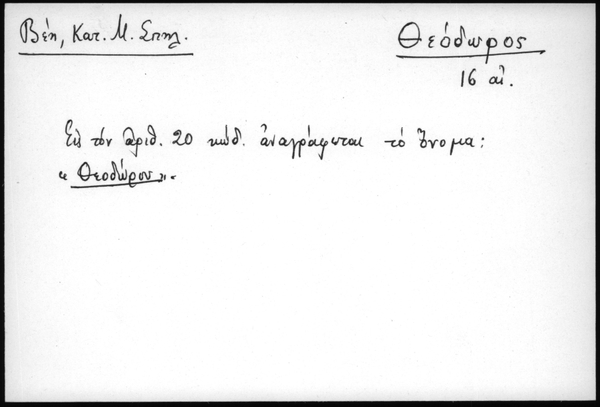 Βέη, Κατ. Μ. Σπηλ.
Θεόδωρος
16 αἰ.
Εἰς τόν ἀριθ. 20 κώδ. ἀναγράφεται τό ὄνομα:
«Θεοδώρου».